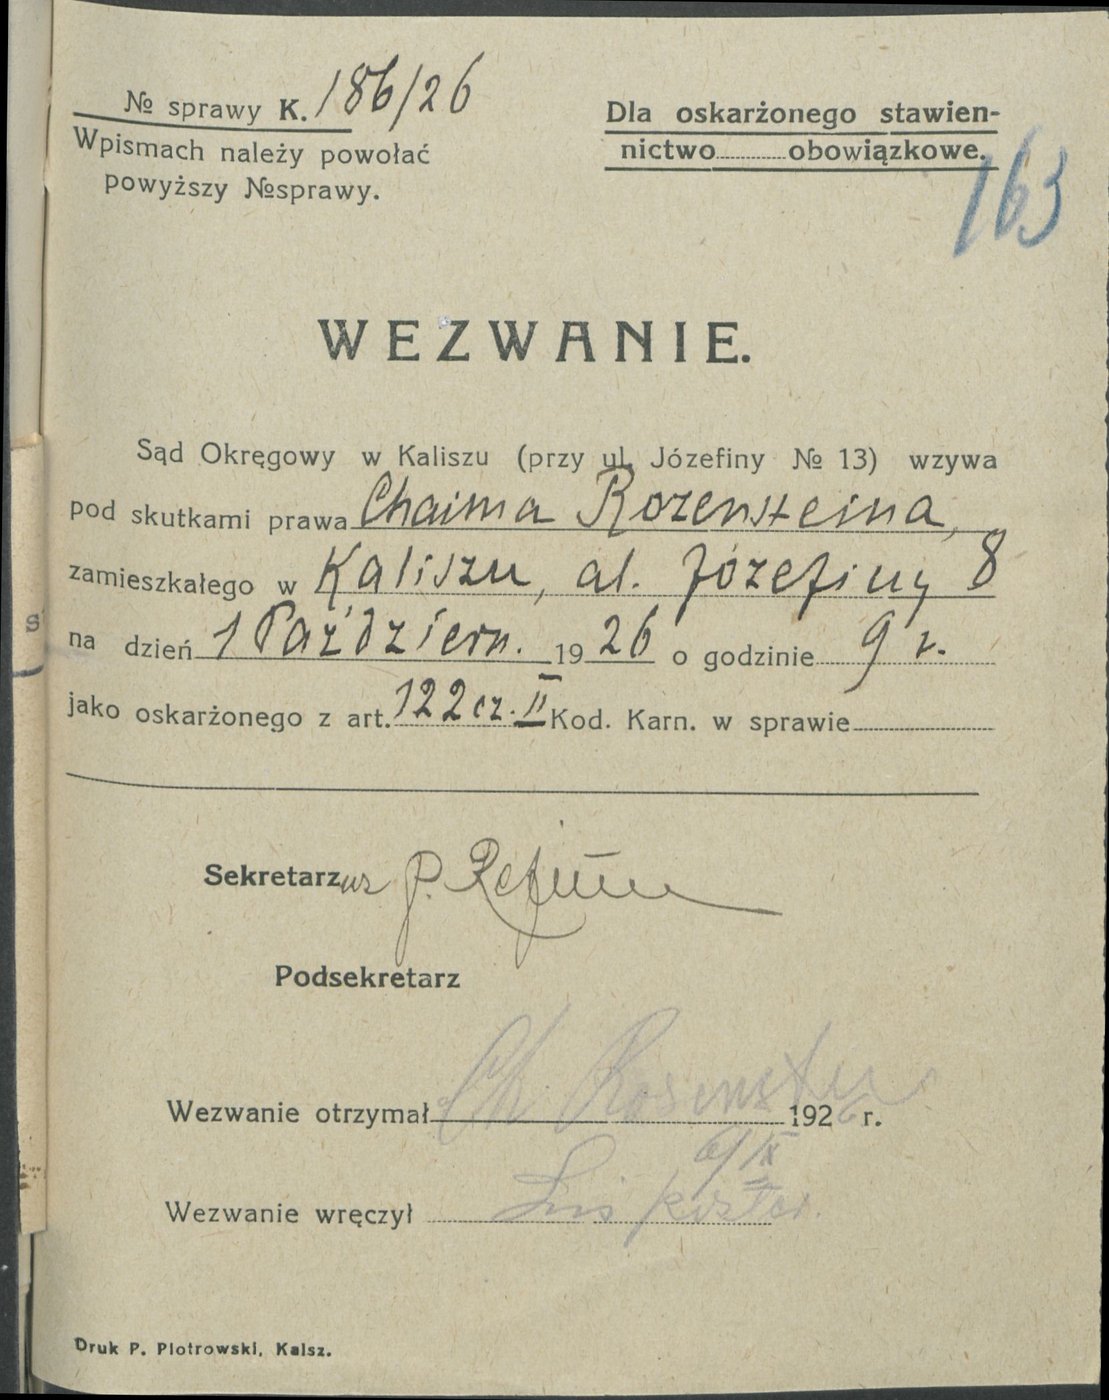 № sprawy K. 186/26
Wpismach należy powołać
powyższy №sprawy.
Dla oskarżonego stawien-
nictwo obowiązkowe.
163
WEZWANIE.
Sąd Okręgowy w Kaliszu (przy ul. Józefiny № 13) wzywa
pod skutkami prawa Chaima Rozensteina,
zamieszkałego w Kaliszu, al. Józefiny 8
na dzień 1 Październ. 1926 o godzinie 9 r.
jako oskarżonego z art. 122 cz. II Kod. Karn. w sprawie
Sekretarz
Podsekretarz
Wezwanie otrzymał Ch Rosenstein 1926 r.
/IX
Wezwanie wręczył
Druk P. Piotrowski, Kalsz.